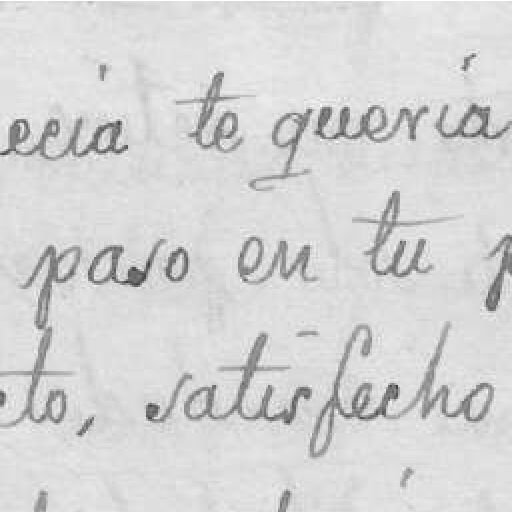 ecía te quería
paso en tu p
cto, satisfecho